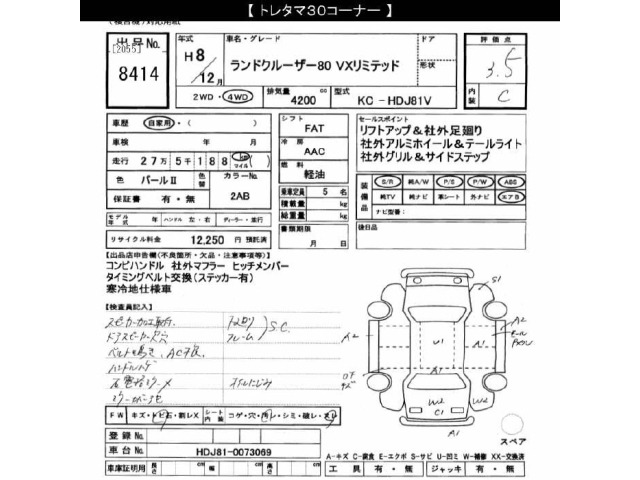 【 トレタマ３０コーナー 】
出品No.
[2055]
8414
年式
H8
12月
車名・グレード
ランドクルーザー80 VXリミテッド
ドア
形状
評価点
3.5
内装
C
2WD・4WD
排気量
4200
cc
型式
KC - HDJ81V
車歴
自家用・( )
車検
年 月
走行
27万5千188
km
マイル
色
パールⅡ
色替
カラーNo.
2AB
保証書
有・無
モデル年式
年
ハンドル
左・右
ディーラー・並行
リサイクル料金
12,250 円 預託済
シフト
FAT
冷房
AAC
燃料
軽油
乗車定員
5 名
積載量
kg
総重量
kg
書類期限
月 日
セールスポイント
リフトアップ＆社外足廻り
社外アルミホイール＆テールライト
社外グリル＆サイドステップ
装備品
S/R
純A/W
P/S
P/W
ABS
純TV
純ナビ
革シート
外ナビ
エアB
ナビ型番：
後日品
【出品店申告欄(不良箇所・欠品・注意事項等)】
コンビハンドル 社外マフラー ヒッチメンバー
タイミングベルト交換(ステッカー有)
寒冷地仕様車
【検査員記入】
スピーカー加工
下廻り
フレーム
S.C
ドアスピーカー穴
ベルト鳴き、AC不良
オイルにじみ
FW
キズ・トビ石・割レX
シート内張
コゲ・穴・汚レ・シミ・破レ・スレ
登録No.
車台No.
HDJ81-0073069
車庫証明用
長さ
cm
幅
cm
高さ
cm
S1
A2
U1
A1
A2
A1
W2
C1
W2
A1
スペア
A-キズ C-腐食 E-エクボ S-サビ U-凹ミ W-補修 XX-交換済
工具
有・無
ジャッキ
有・無